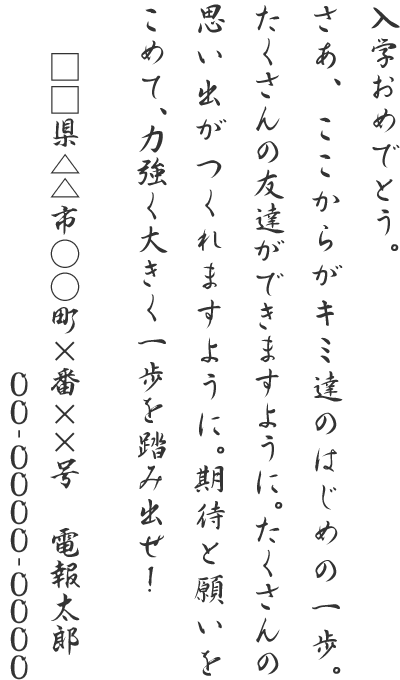 入学おめでとう。
さあ、ここからがキミ達のはじめの一歩。
たくさんの友達ができますように。たくさんの
思い出がつくれますように。期待と願いを
こめて、力強く大きく一歩を踏み出せ！
□□県△△市○○町×番××号　電報太郎
00-0000-0000